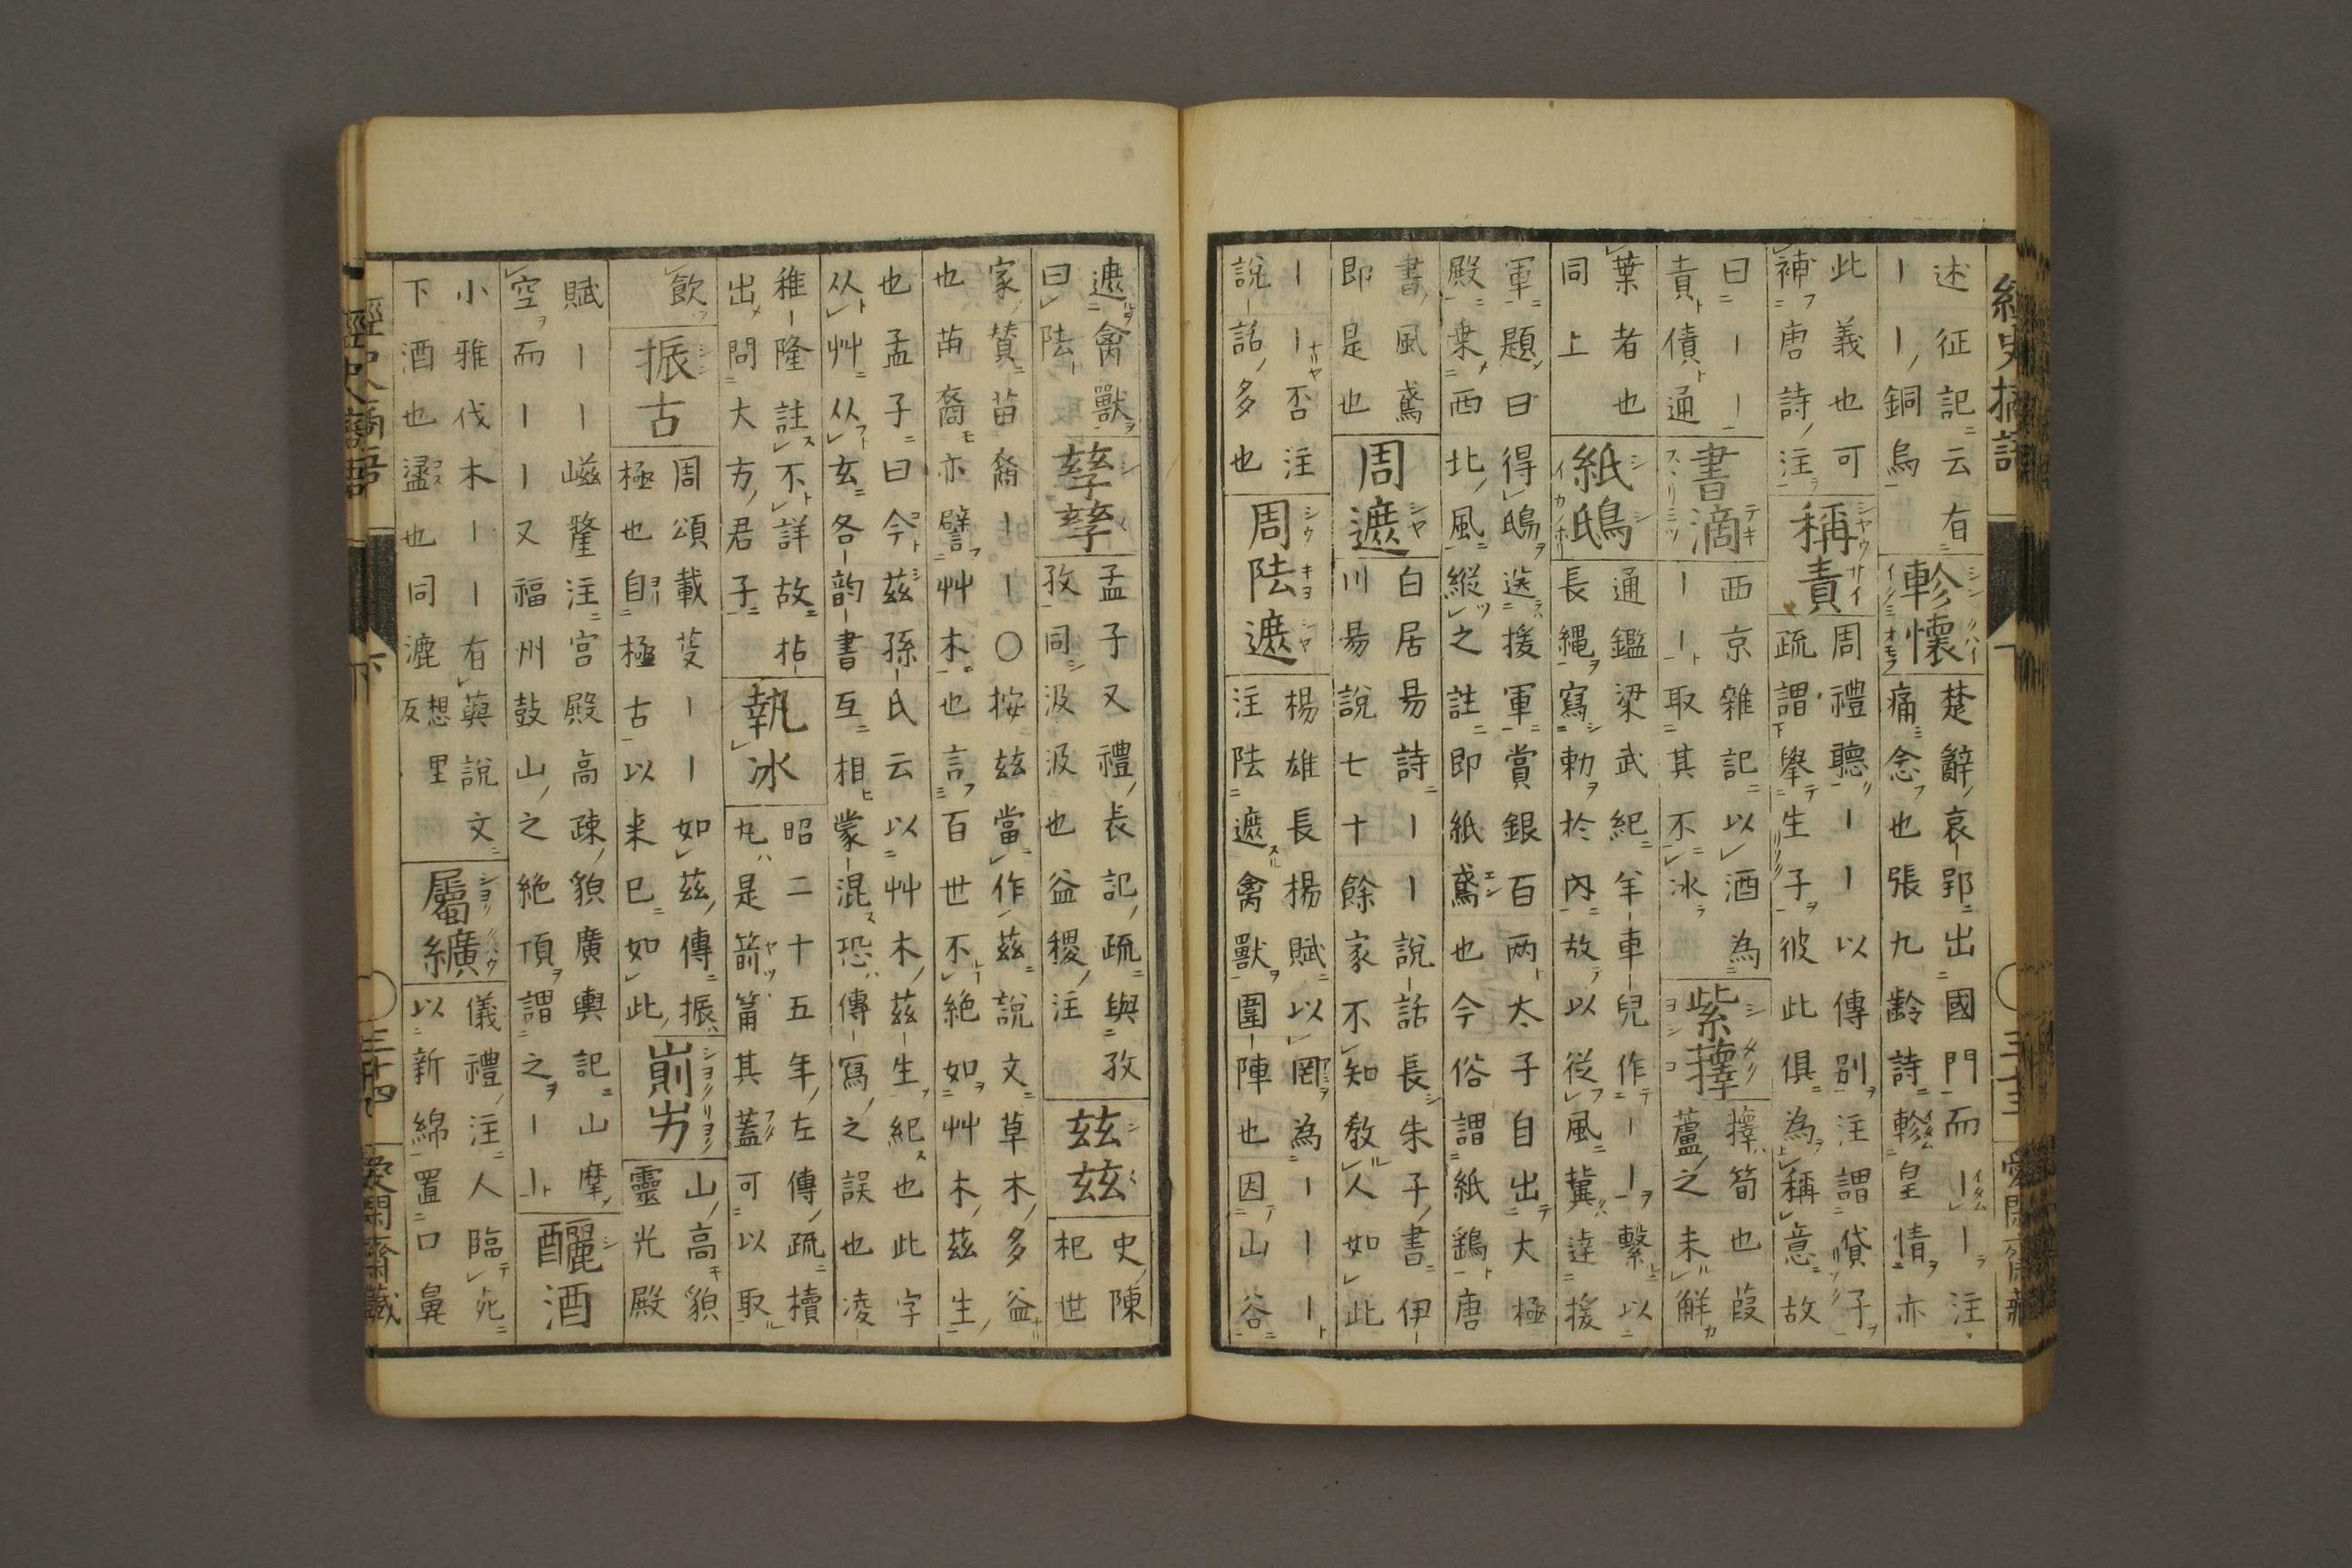 經史摘語
述征記云有
ーー銅烏
軫懷
楚辭哀郢出國門而ーー注
痛念也張九齡詩軫皇情亦
此義也可
補唐詩注
稱責
周禮聽ーー以傳別注謂貸子
疏謂擧生子彼此俱為稱意故
曰ーー
責債通
書滴
西京雜記以酒為
ーー取其不冰
紫蘀
蘀筍也葭
蘆之未解
葉者也
同上
紙鴟
通鑑梁武紀羊車兒作ーー繫以
長繩寫勅於內放以從風冀達援
軍題曰得鴟送援軍賞銀百兩太子自出大極
殿乗西北風縱之註即紙鳶也今俗謂紙鷂唐
書風鳶
即是也
周遮
白居易詩ーー說話長朱子書伊
川易說七十餘家不知教人如此
ーー否注
說話多也
周阹遮
楊雄長楊賦以罔為ーーー
注阹遮禽獸圍陣也因山谷
三十三
愛閑齋藏
遮禽獸
曰阹
孳孳
孟子又禮表記疏與孜
孜同汲汲也益稷注
茲茲
史陳
杞世
家賛苗裔ーー〇按茲當作茲說文草木多益
也苗裔亦譬艸木也言百世不絕如艸木茲生
也孟子曰今茲孫氏云以艸木茲生紀也此字
从艸从玄各韵書互相蒙混恐傳寫之誤也凌
稚隆註不詳故拈
出問大方君子
執冰
昭二十五年左傳疏櫝
丸是箭筩其蓋可以取
飲
振古
周頌載芟ーー如茲傳振
極也自極古以来已如此
崱屴
山高貌
靈光殿
賦ーー嵫釐注宮殿高疎貌廣輿記山摩
空而ーー又福州鼓山之絕頂謂之ーー
釃酒
小雅伐木ーー有藇說文
下酒也盪也同漉想里反
屬纊
儀禮注人臨死
以新綿置口鼻
經史摘語
下
三十四
愛閑齋藏